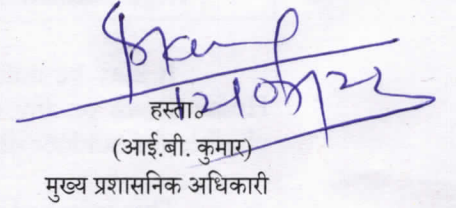 हस्ता०
(आई.बी. कुमार)
मुख्य प्रशासनिक अधिकारी